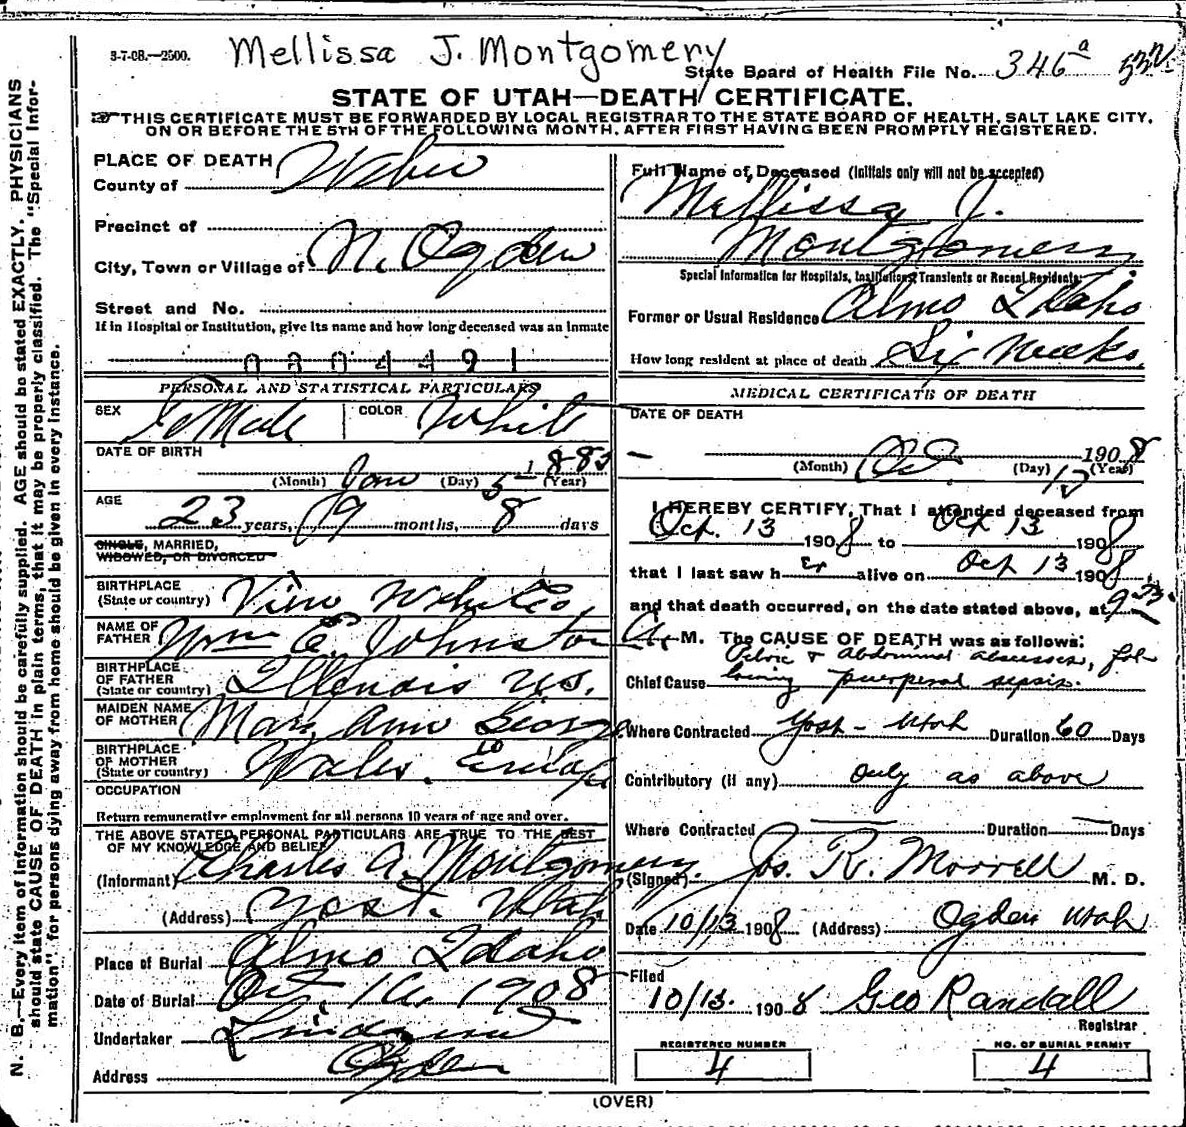 3-7-08.—2500.
Mellissa J. Montgomery
State Board of Health File No. 346 a
STATE OF UTAH—DEATH CERTIFICATE.
THIS CERTIFICATE MUST BE FORWARDED BY LOCAL REGISTRAR TO THE STATE BOARD OF HEALTH, SALT LAKE CITY,
ON OR BEFORE THE 5TH OF THE FOLLOWING MONTH, AFTER FIRST HAVING BEEN PROMPTLY REGISTERED.
N. B.—Every item of information should be carefully supplied. AGE should be stated EXACTLY. PHYSICIANS
should state CAUSE OF DEATH in plain terms, that it may be properly classified. The "Special Infor-
mation" for persons dying away from home should be given in every instance.
PLACE OF DEATH
County of Weber
Precinct of
City, Town or Village of N. Ogden
Street and No.
If in Hospital or Institution, give its name and how long deceased was an inmate
PERSONAL AND STATISTICAL PARTICULARS
SEX Female COLOR White
DATE OF BIRTH
(Month) Jan (Day) 5 1885 (Year)
AGE
23 years, 9 months, 8 days
SINGLE, MARRIED,
WIDOWED, OR DIVORCED
BIRTHPLACE
(State or country)
NAME OF
FATHER Wm E. Johnston
BIRTHPLACE
OF FATHER
(State or country) Illenois U.S.
MAIDEN NAME
OF MOTHER Mary Ann George
BIRTHPLACE
OF MOTHER
(State or country) Wales.
OCCUPATION
Return remunerative employment for all persons 10 years of age and over.
THE ABOVE STATED PERSONAL PARTICULARS ARE TRUE TO THE BEST
OF MY KNOWLEDGE AND BELIEF
(Informant) Charles A. Montgomery.
(Address) Yost. Utah
Place of Burial Almo Idaho
Date of Burial Oct. 16, 1908
Undertaker
Address Ogden
Full Name of Deceased (Initials only will not be accepted)
Mellissa J.
Montgomery
Special Information for Hospitals, Institutions, Transients or Recent Residents:
Former or Usual Residence Almo Idaho
How long resident at place of death Six Weeks
MEDICAL CERTIFICATE OF DEATH
DATE OF DEATH
(Month) Oct (Day) 13 1908 (Year)
I HEREBY CERTIFY, That I attended deceased from
Oct. 13 1908 to Oct 13 1908
that I last saw her alive on Oct 13 1908
and that death occurred, on the date stated above, at 9
A. M. The CAUSE OF DEATH was as follows:
Pelvic & Abdominal abscesses, fol-
Chief Cause lowing puerperal sepsis.
Where Contracted Yost - Utah Duration 60 Days
Contributory (if any) Only as above
Where Contracted — Duration — Days
(Signed) Jos. R. Morrell M. D.
Date 10/13 1908 (Address) Ogden Utah
Filed
10/13. 1908 Geo Randall
Registrar
REGISTERED NUMBER
4
NO. OF BURIAL PERMIT
4
(OVER)